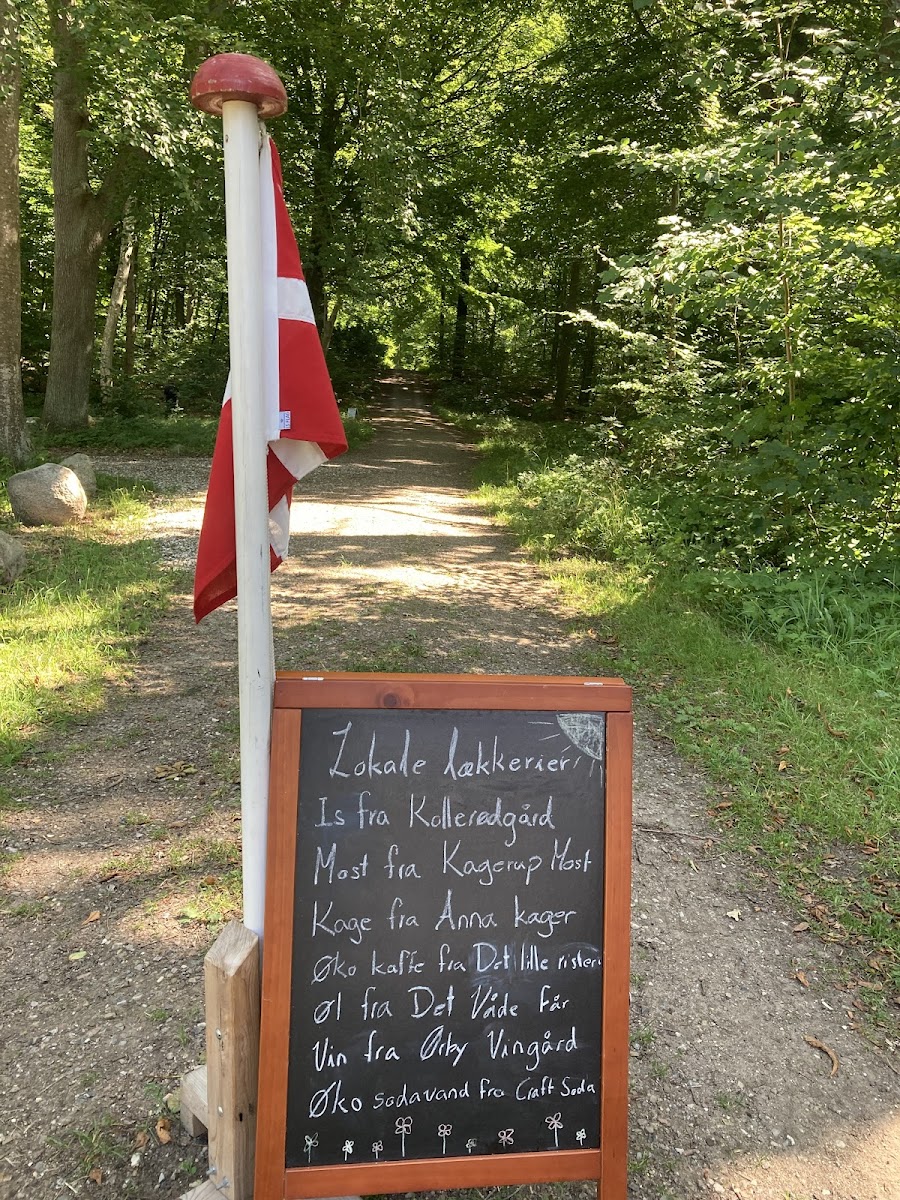 Lokale lækkerier
Is fra Kollerødgård
Most fra Kagerup Most
Kage fra Anna kager
Øko kaffe fra Det lille risteri
Øl fra Det Våde Får
Vin fra Ørby Vingård
Øko sodavand fra Craft Soda